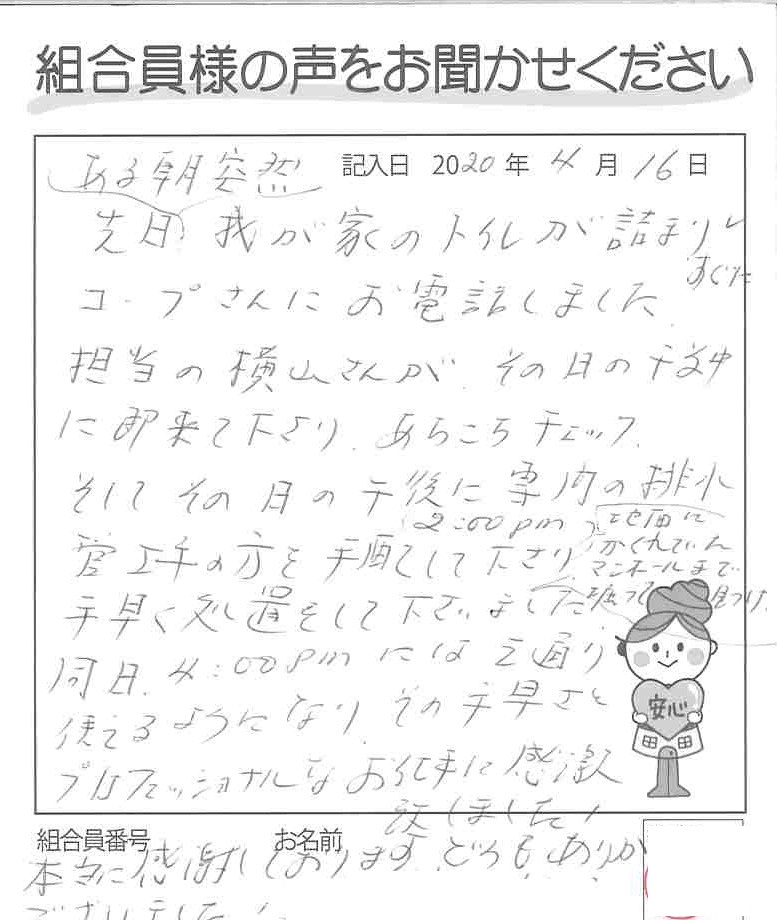 組合員様の声をお聞かせください
記入日 2020年 4月16日
ある朝突然
先日 我が家のトイレが詰まり
すぐに
コープさんにお電話しました
担当の横山さんが、その日の午前中
に即来て下さり、あちこちチェック、
そしてその日の午後に専門の排水
(2:00pm)
管工事の方を手配して下さり
地面に
かくれていた
マンホールまで
堀って見つけ
手早く処置をして下さいました
同日、4:00pmには元通り
使えるようになり その手早さと
プロフェッショナルなお仕事に感激
致しました!
安心
組合員番号 お名前
本当に感謝しております。どうもありが
ございました!